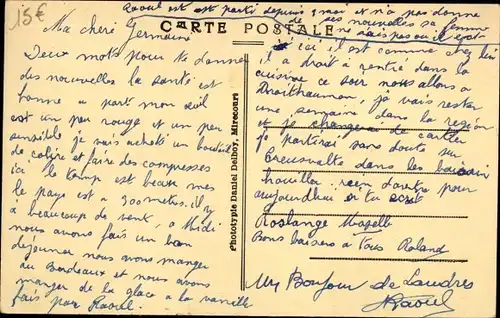 15€
Raoul est est parti depuis 1 moi et n'a pas donné
de ses nouvelles sa femme
ne sais pas ou il est
CARTE POSTALE
Ma cheri Germaine
Deux mots pour te donne
des nouvelles la santé est
bonne a part mon œil
est un peu rouge et un peu
sensible je vais acheté un
de colire et faire des compresses
ici le temp est beau mes
le pays est a 300 metres. il y
a beaucoup de vent, a Midi
nous avons fais un bon
dejeuner nous avons manger
au Bordeaux et nous avons
manger de la glace a la vanille
fais par Raoul.
Phototypie Daniel Delboy, Mirecourt
ici il est comme chez lui
il a droit a rentré dans la
cuisine ce soir nous allons a
je vais rester
une semaine dans la region
et je changerai de cartier
je partirai sans doute sur
dans les bassin
houiller. rien d'autre pour
aujourdhui et tu
Moselle
Bons baisers a Tous Roland
Un Bonjour de
Raoul